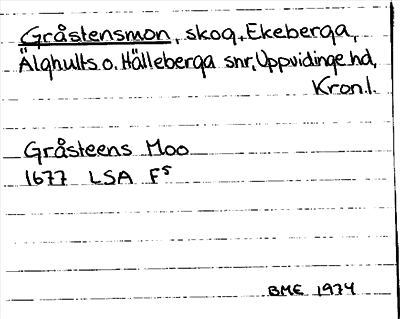 Gråstensmon, skog, Ekeberga,
Älghults o. Hälleberga snr, Uppvidinge hd,
Kron.l.
Gråsteens Moo
1677 LSA F⁵
BME 1974